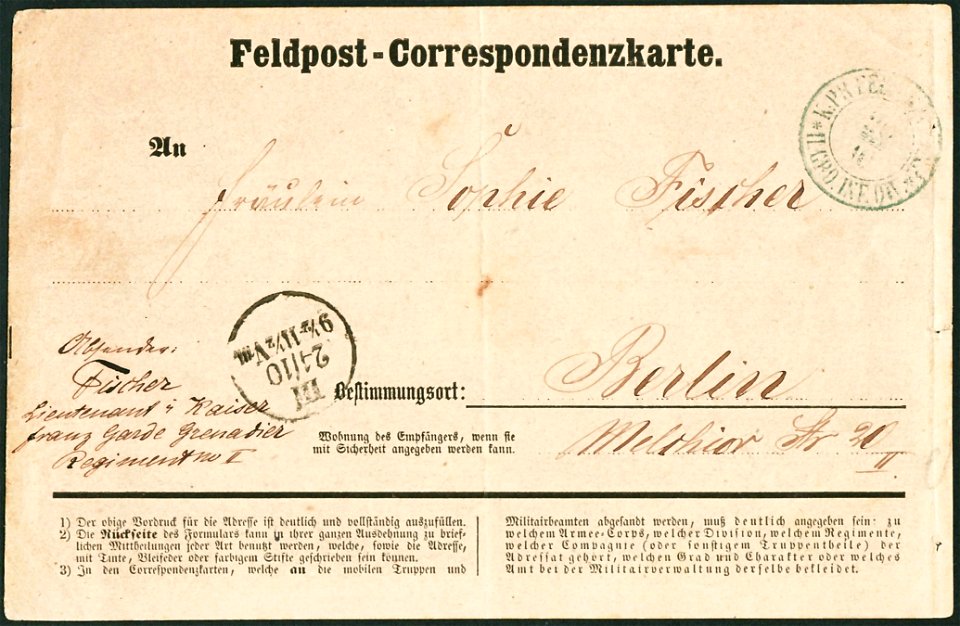 Feldpost-Correspondenzkarte.
K.PR.FE
II GRD.INF.DIV.
An
Fräulein Sophie Fischer
24/10
III
Absender:
Fischer
Lieutenant i Kaiser
franz Garde Grenadier
Regiment no I
Bestimmungsort: Berlin
Wohnung des Empfängers, wenn sie
mit Sicherheit angegeben werden kann.
Melchior Str 20
II
1) Der obige Vordruck für die Adresse ist deutlich und vollständig auszufüllen.
2) Die Rückseite des Formulars kann in ihrer ganzen Ausdehnung zu brief-
lichen Mittheilungen jeder Art benutzt werden, welche, sowie die Adresse,
mit Tinte, Bleifeder oder farbigem Stifte geschrieben sein können.
3) In den Correspondenzkarten, welche an die mobilen Truppen und
Militairbeamten abgesandt werden, muß deutlich angegeben sein: zu
welchem Armee-Corps, welcher Division, welchem Regimente,
welcher Compagnie (oder sonstigem Truppentheile) der
Adressat gehört, welchen Grad und Charakter oder welches
Amt bei der Militairverwaltung derselbe bekleidet.